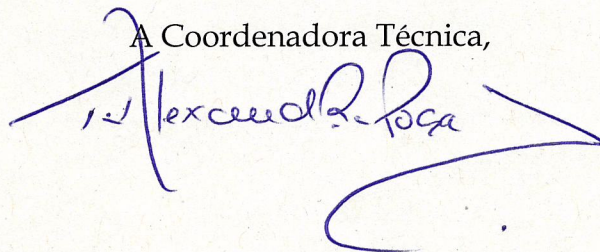 A Coordenadora Técnica,
Alexandra Roça